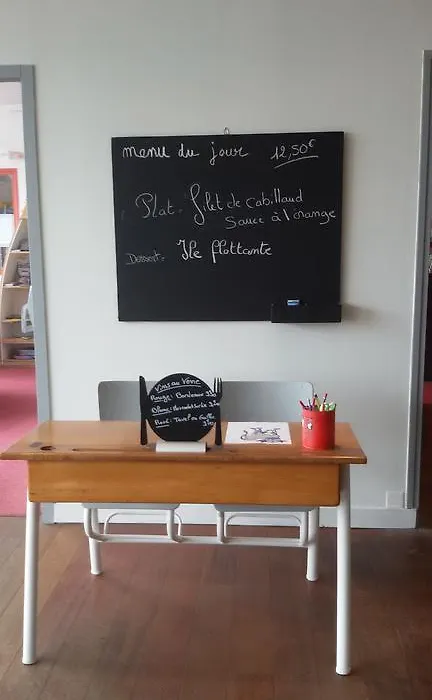 menu du jour 12,50€
Plat: filet de cabillaud
Sauce à l'orange
Dessert: Ile flottante
Vins au Verre
Rouge: Bordeaux
Blanc:
Rosé: